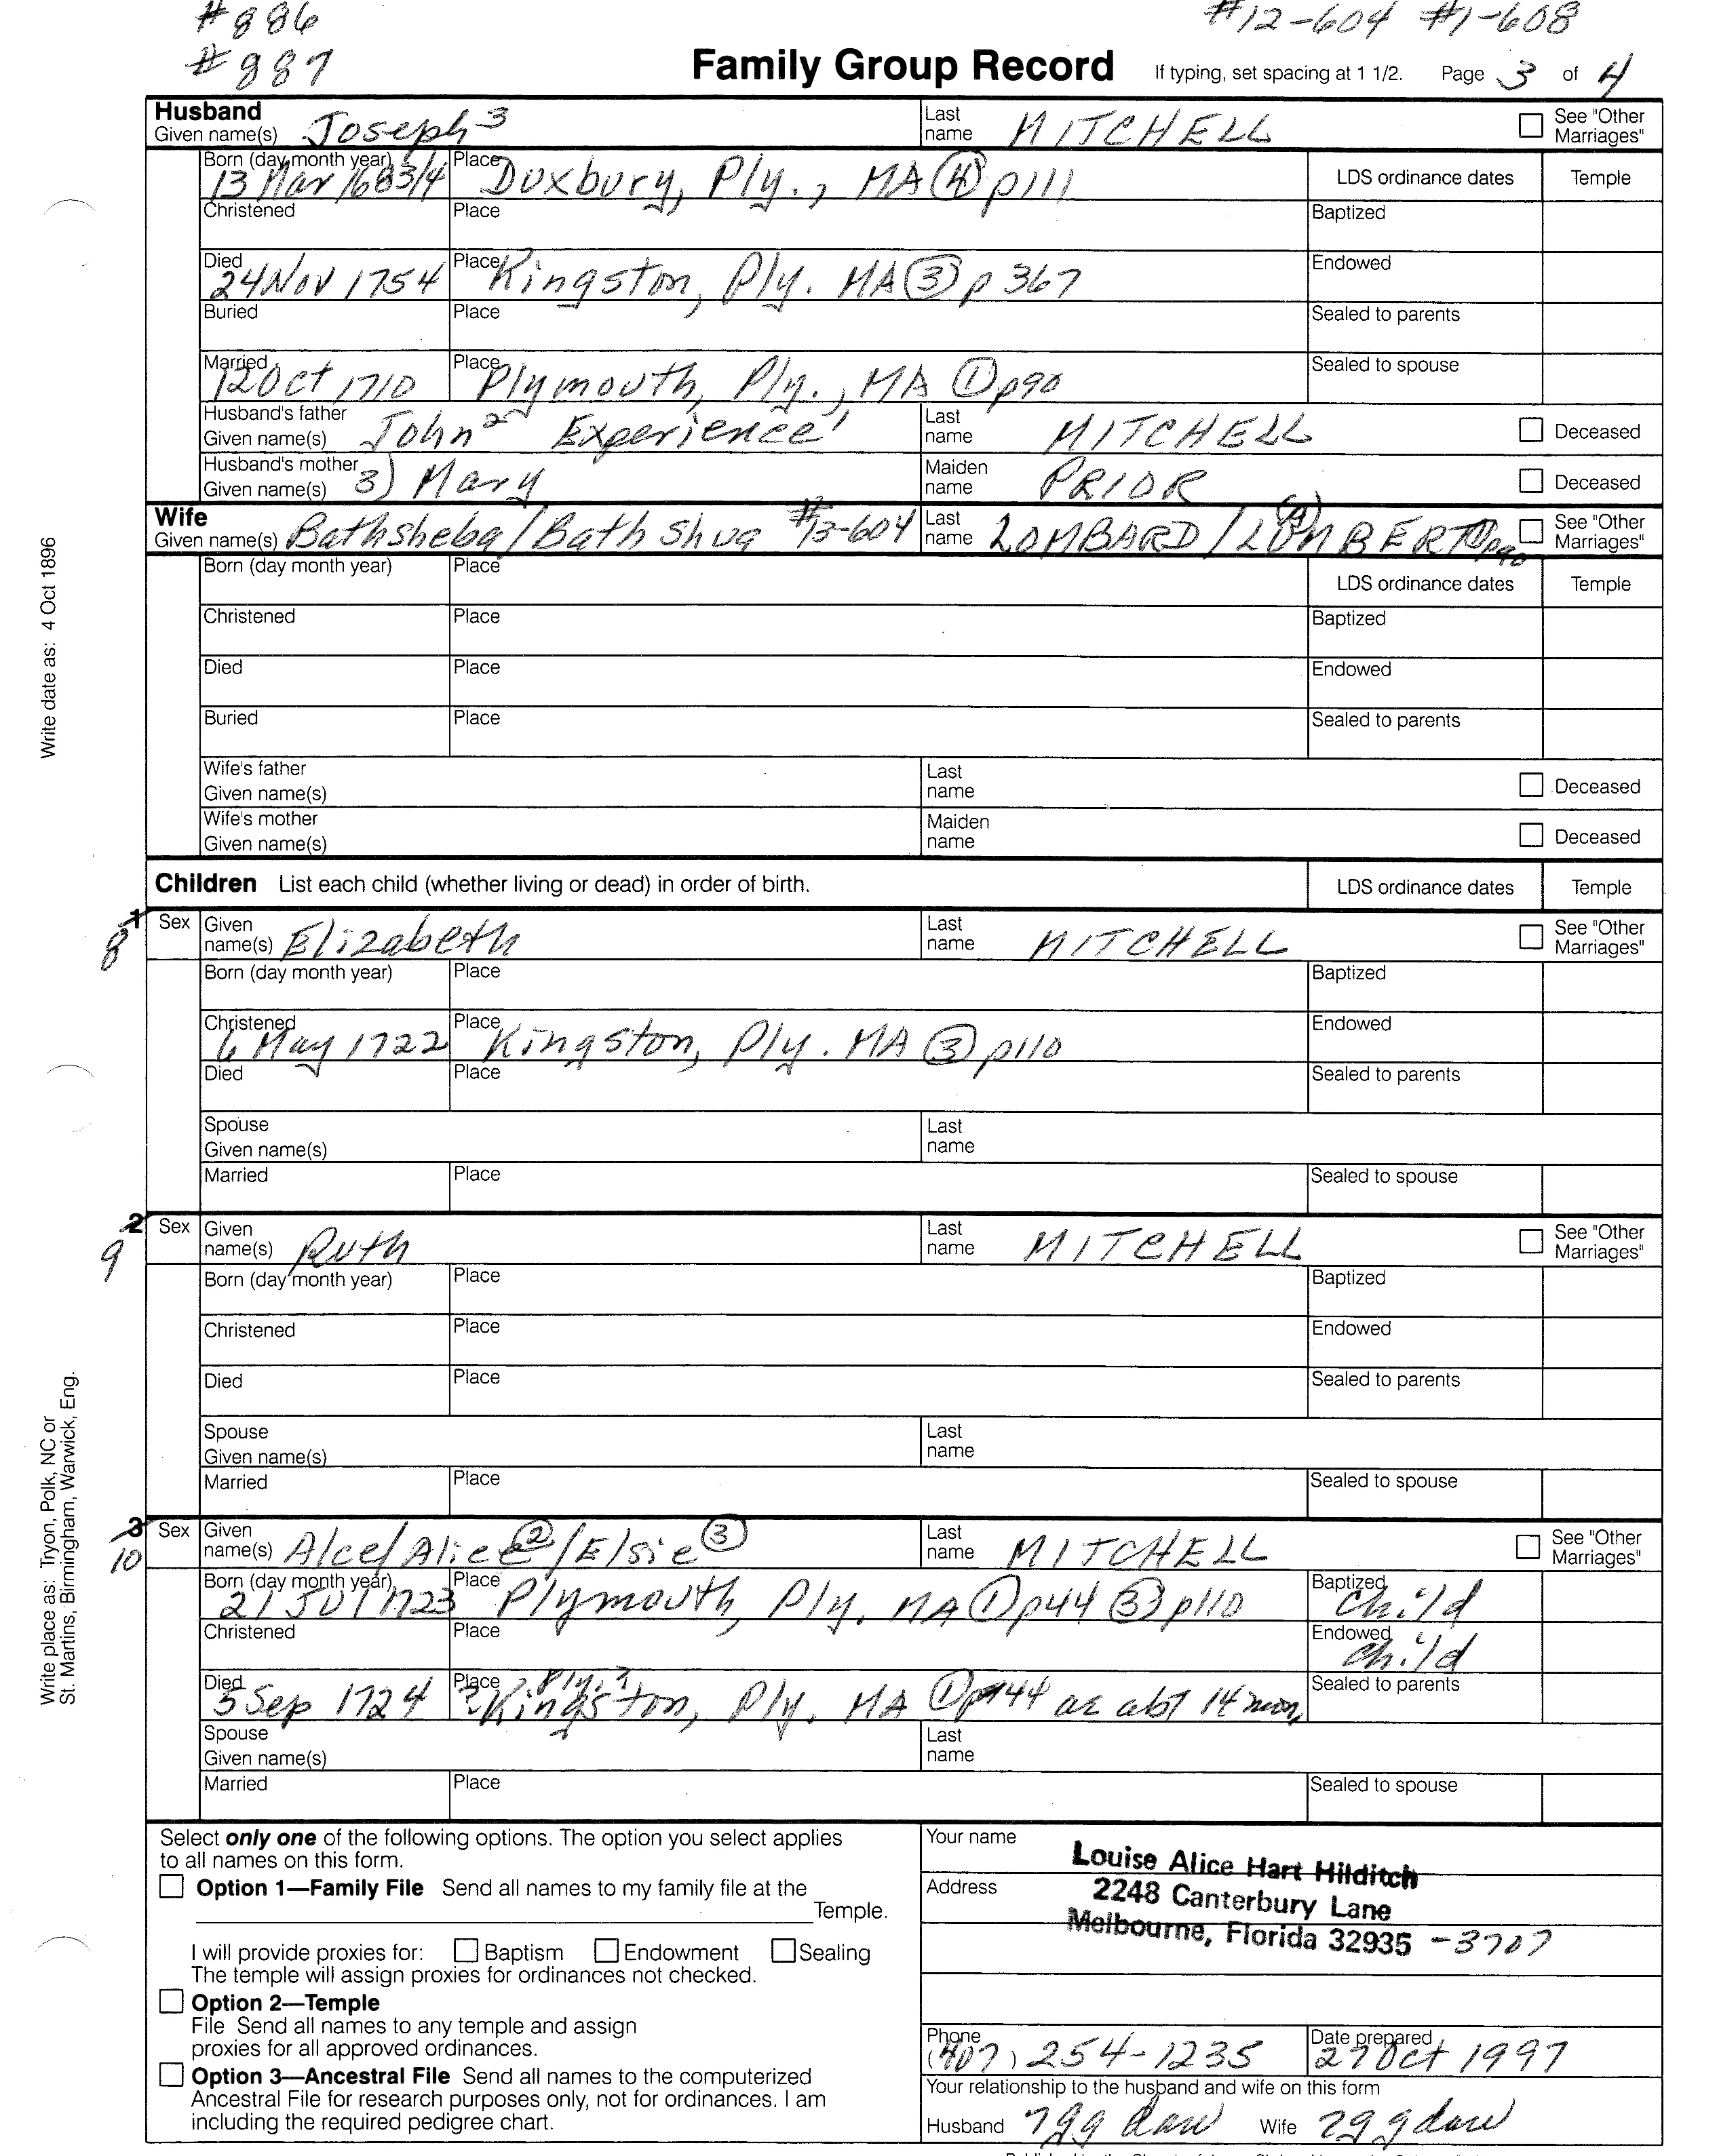 #886 #12-604 #1-608
#887 Family Group Record If typing, set spacing at 1 1/2. Page 3 of 4
Husband
Given name(s) Joseph³ Last name MITCHELL See "Other Marriages"
Born (day month year) 13 Mar 1683/4 Place Duxbury, Ply., MA ④ p111 LDS ordinance dates Temple
Christened Place Baptized
Died 24 Nov 1754 Place Kingston, Ply. MA ③ p 367 Endowed
Buried Place Sealed to parents
Married 12 Oct 1710 Place Plymouth, Ply., MA ① p90 Sealed to spouse
Husband's father
Given name(s) John² Experience¹ Last name MITCHELL Deceased
Husband's mother
Given name(s) 3) Mary Maiden name PRIOR Deceased
Wife
Given name(s) Bathsheba/Bathshua #13-604 Last name LOMBARD/LUMBERT ① p90 See "Other Marriages"
Born (day month year) Place LDS ordinance dates Temple
Christened Place Baptized
Died Place Endowed
Buried Place Sealed to parents
Wife's father
Given name(s) Last name Deceased
Wife's mother
Given name(s) Maiden name Deceased
Children List each child (whether living or dead) in order of birth. LDS ordinance dates Temple
1 8 Sex Given name(s) Elizabeth Last name MITCHELL See "Other Marriages"
Born (day month year) Place Baptized
Christened 6 May 1722 Place Kingston, Ply. MA ③ p110 Endowed
Died Place Sealed to parents
Spouse
Given name(s) Last name
Married Place Sealed to spouse
2 9 Sex Given name(s) Ruth Last name MITCHELL See "Other Marriages"
Born (day month year) Place Baptized
Christened Place Endowed
Died Place Sealed to parents
Spouse
Given name(s) Last name
Married Place Sealed to spouse
3 10 Sex Given name(s) Alce/Alice②/Elsie③ Last name MITCHELL See "Other Marriages"
Born (day month year) 21 Jul 1723 Place Plymouth, Ply. MA ① p44 ③ p110 Baptized Child
Christened Place Endowed Child
Died 5 Sep 1724 Place ?Ply.? ?Kingston, Ply. MA ① p44 ae abt 14 mon. Sealed to parents
Spouse
Given name(s) Last name
Married Place Sealed to spouse
Select only one of the following options. The option you select applies
to all names on this form.
Option 1—Family File Send all names to my family file at the
Temple.
I will provide proxies for: Baptism Endowment Sealing
The temple will assign proxies for ordinances not checked.
Option 2—Temple
File Send all names to any temple and assign
proxies for all approved ordinances.
Option 3—Ancestral File Send all names to the computerized
Ancestral File for research purposes only, not for ordinances. I am
including the required pedigree chart.
Your name Louise Alice Hart Hilditch
Address 2248 Canterbury Lane
Melbourne, Florida 32935 -3707
Phone (407) 254-1235 Date prepared 27 Oct 1997
Your relationship to the husband and wife on this form
Husband 7gg dau Wife 7gg dau
Write date as: 4 Oct 1896
Write place as: Tryon, Polk, NC or
St. Martins, Birmingham, Warwick, Eng.